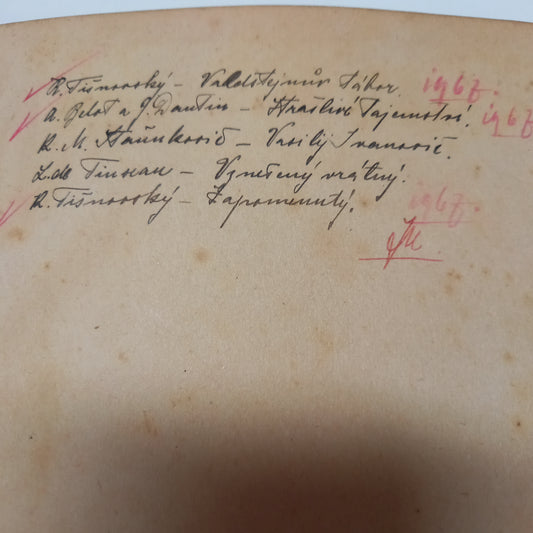 R. Tišnovský – Valdštejnův Tábor. 1967.
A. Belot a J. Dautin – Strašlivé Tajemství. 1967.
R. M. Haňkovič – Vasilij Ivanovič.
L. de Tinseau – Vznešený vrátný.
R. Tišnovský – Zapomenutý. 1967.